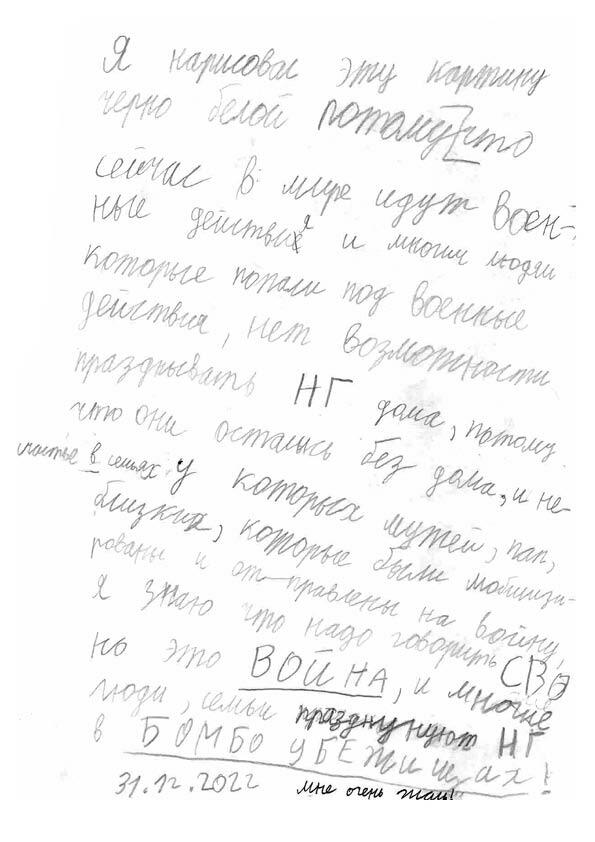 Я нарисовал эту картину
черно белой потому что
сейчас в мире идут воен-
ные действия и многим людям
которые попали под военные
действия, нет возможности
празднывать НГ дома, потому
что они остались без дома, и не-
счастье в семьях у которых мужей, пап,
близких, которые были мобилизи-
рованы и от правлены на войну,
я знаю что надо говорить СВО
но это ВОЙНА, и многие
люди, семьи празднуюют НГ
в БОМБОУБЕЖИЩАХ!
31.12.2022 мне очень жаль!